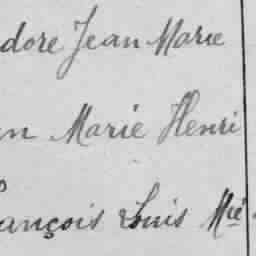 dore Jean Marie
n Marie Henri
ançois Louis Mié